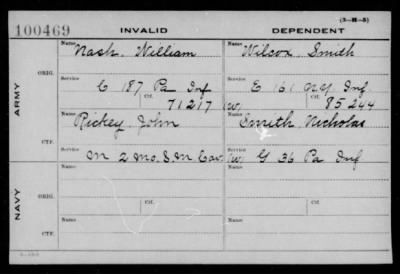 (3-H-5)
100469 INVALID DEPENDENT
Name Nash, William Name Wilcox Smith
ORIG.
Service C 187 Pa Inf Service E 161 N.Y. Inf
Ctf. 71217 (W) Ctf. 85244
ARMY
Name Rickey, John Name Smith, Nicholas
CTF.
Service M 2 Mo. S.M. Cav. Service (W) G 36 Pa Inf
Name Name
ORIG.
Service Service
Ctf. Ctf.
NAVY
Name Name
CTF.
Service Service